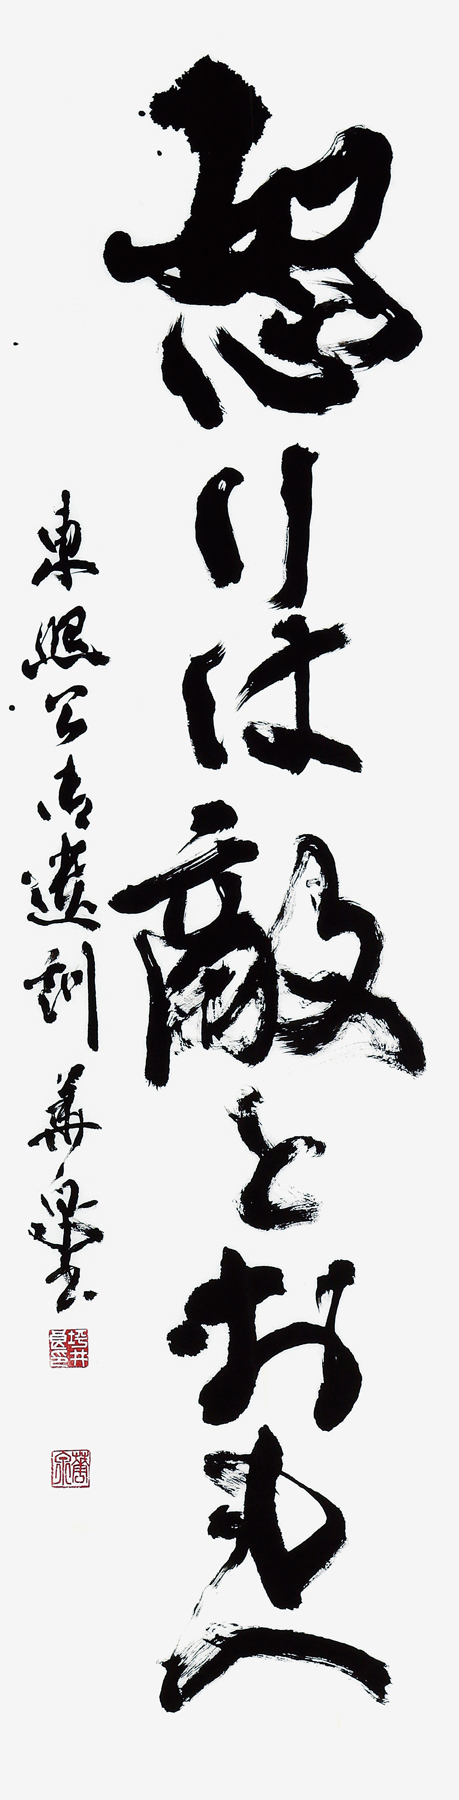 怒りは敵とおもへ
東照公御遺訓 華泉書